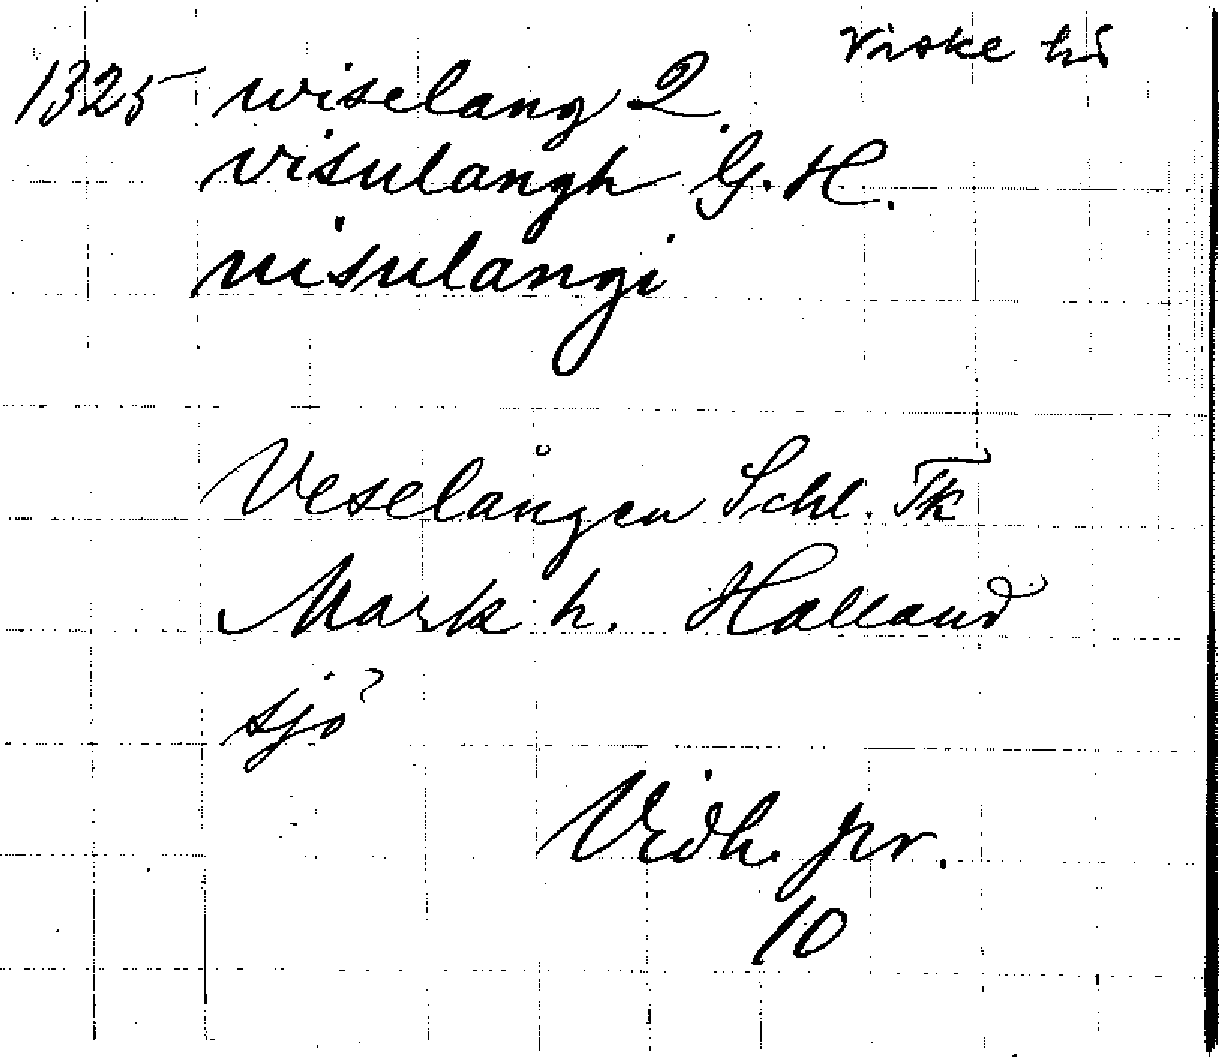 Viske hd
1325 wiselang 2.
visulangh G. H.
uisulangi
Veselången Schl. Tk
Mark h. Halland
sjö?
Vidh. pr.
10